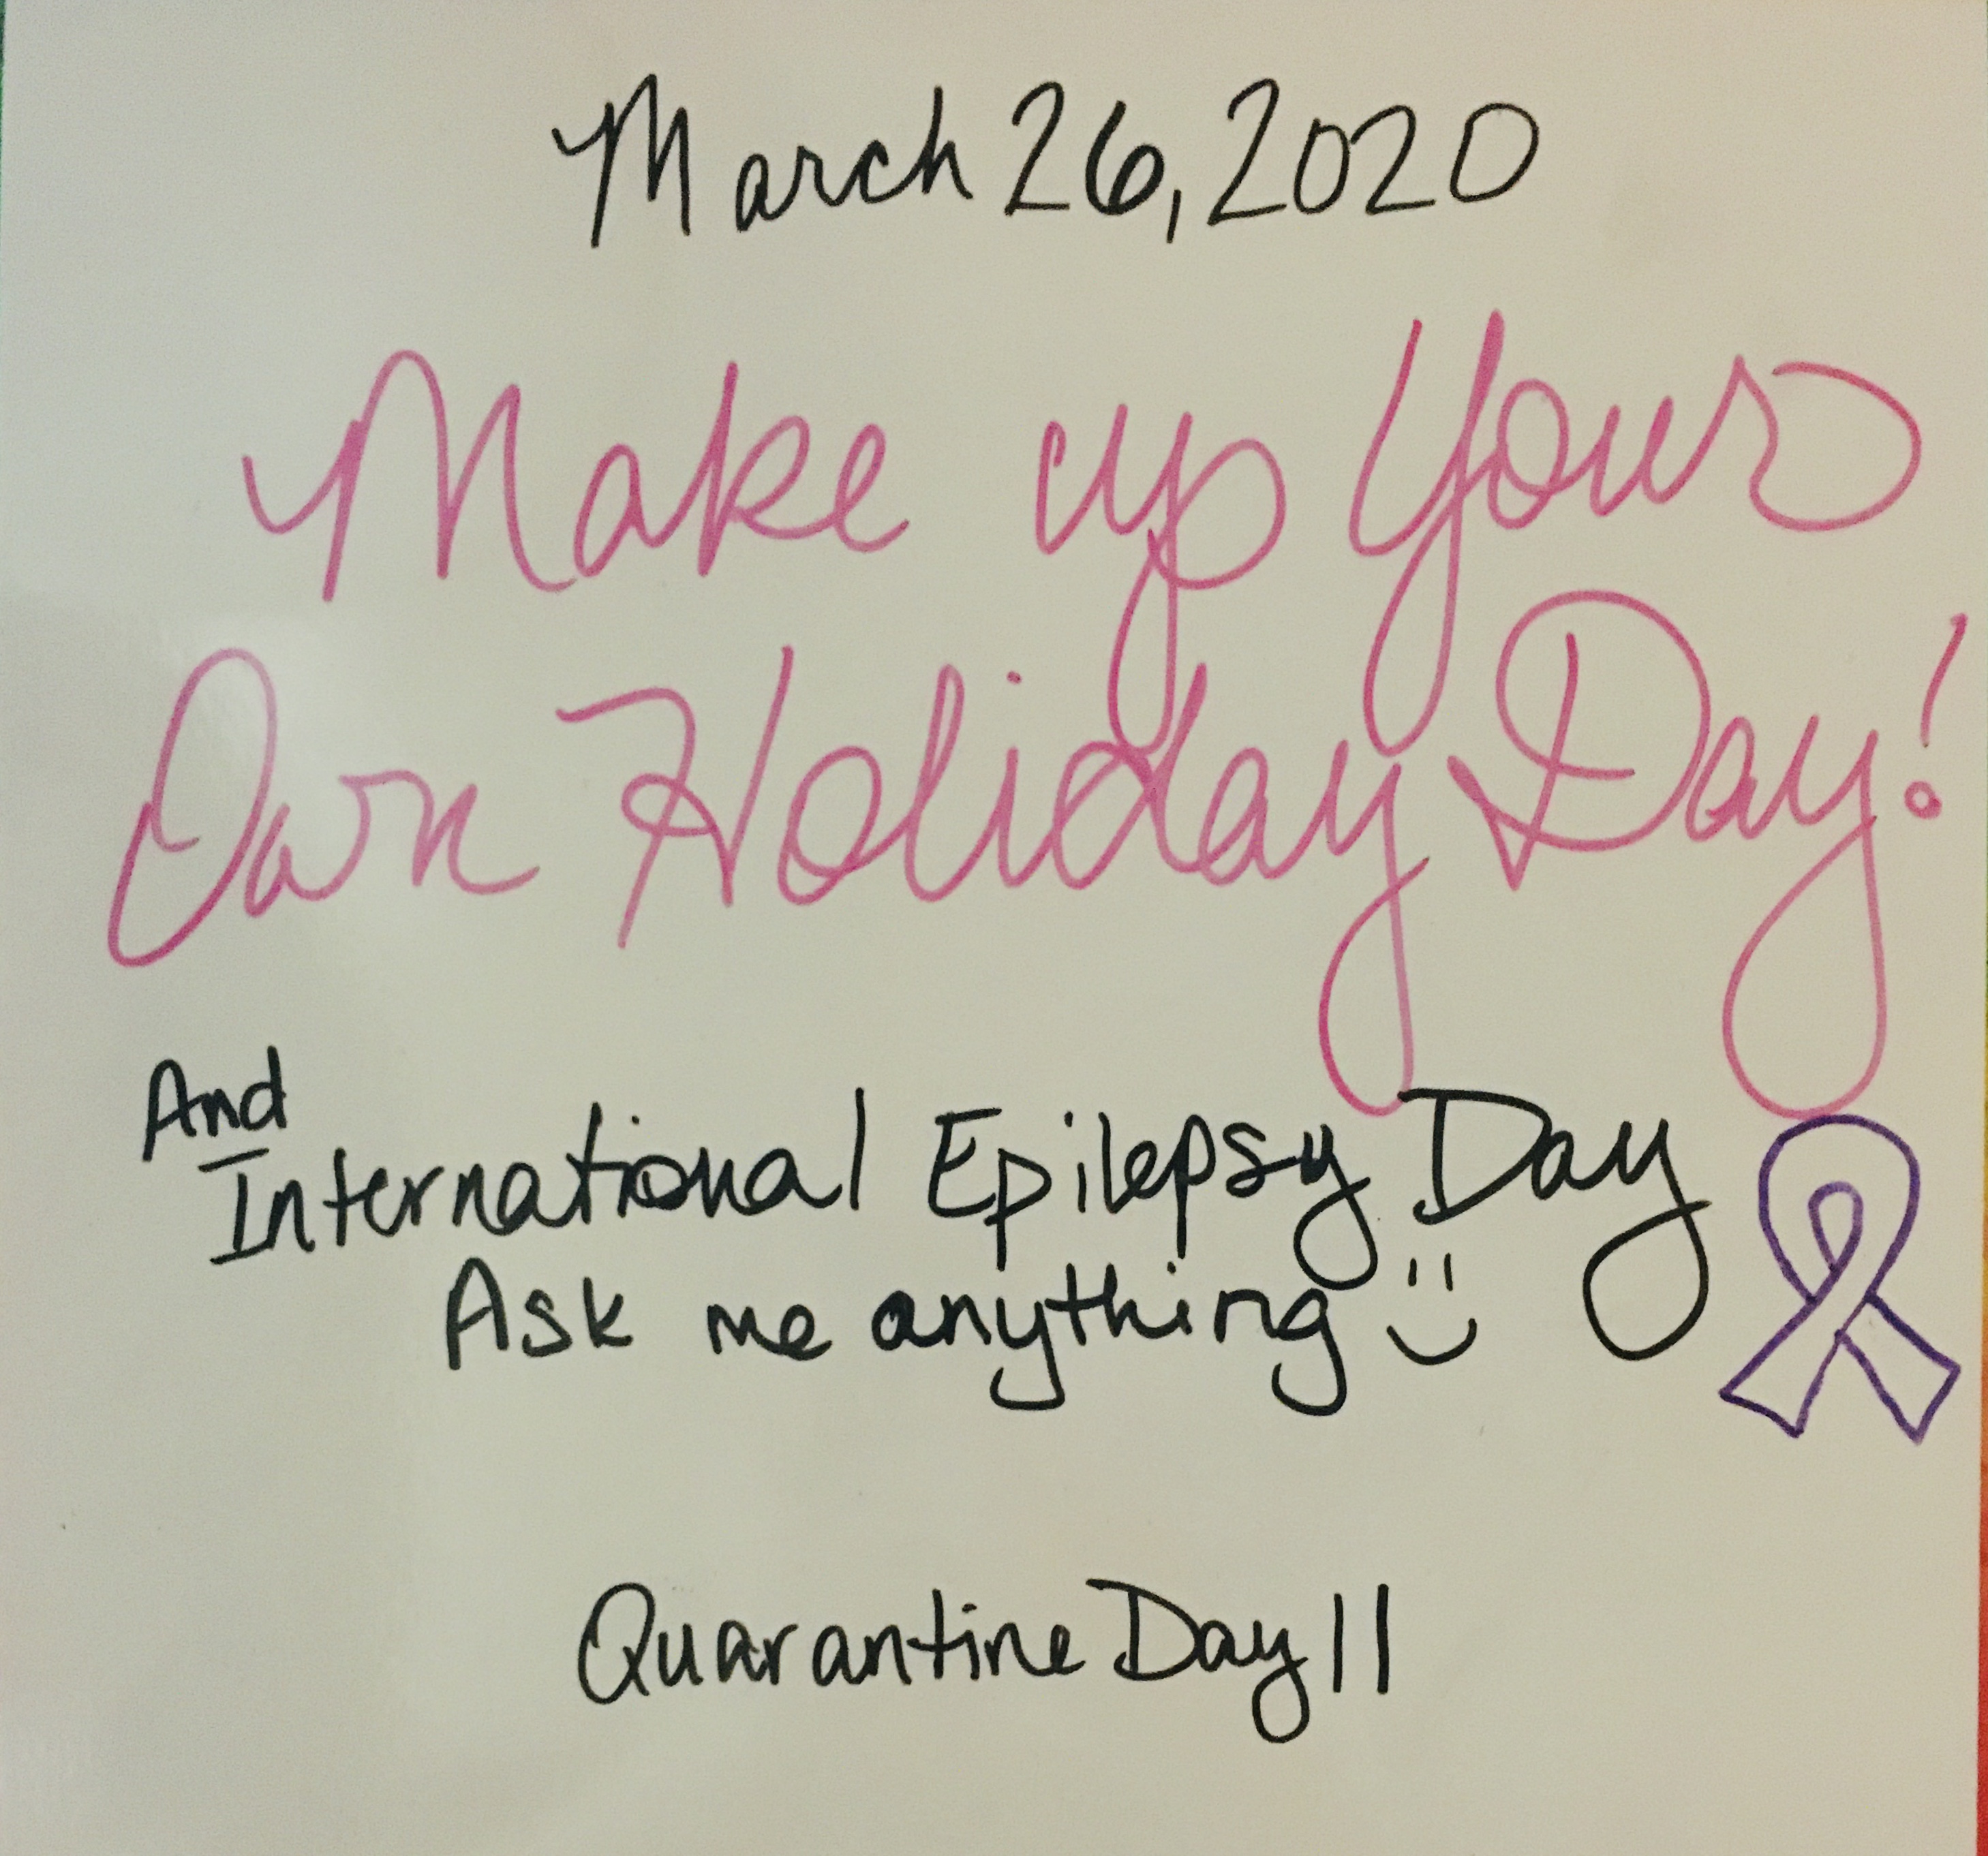 March 26, 2020
Make up Your
Own Holiday Day!
And
International Epilepsy Day
Ask me anything
Quarantine Day 11